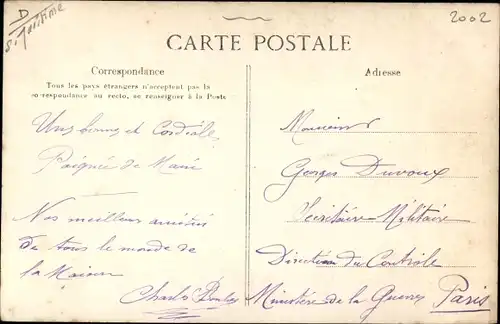 D
St Maritime
2002
CARTE POSTALE
Correspondance
Tous les pays étrangers n'acceptent pas la
correspondance au recto, se renseigner à la Poste
Une bonne et Cordiale
Poignée de Main
Nos meilleurs amitiés
de tous le monde de
la Maison
Charles
Adresse
Monsieur
Georges Duvoux
Secrétaire Militaire
Direction du Contrôle
Ministère de la Guerre Paris